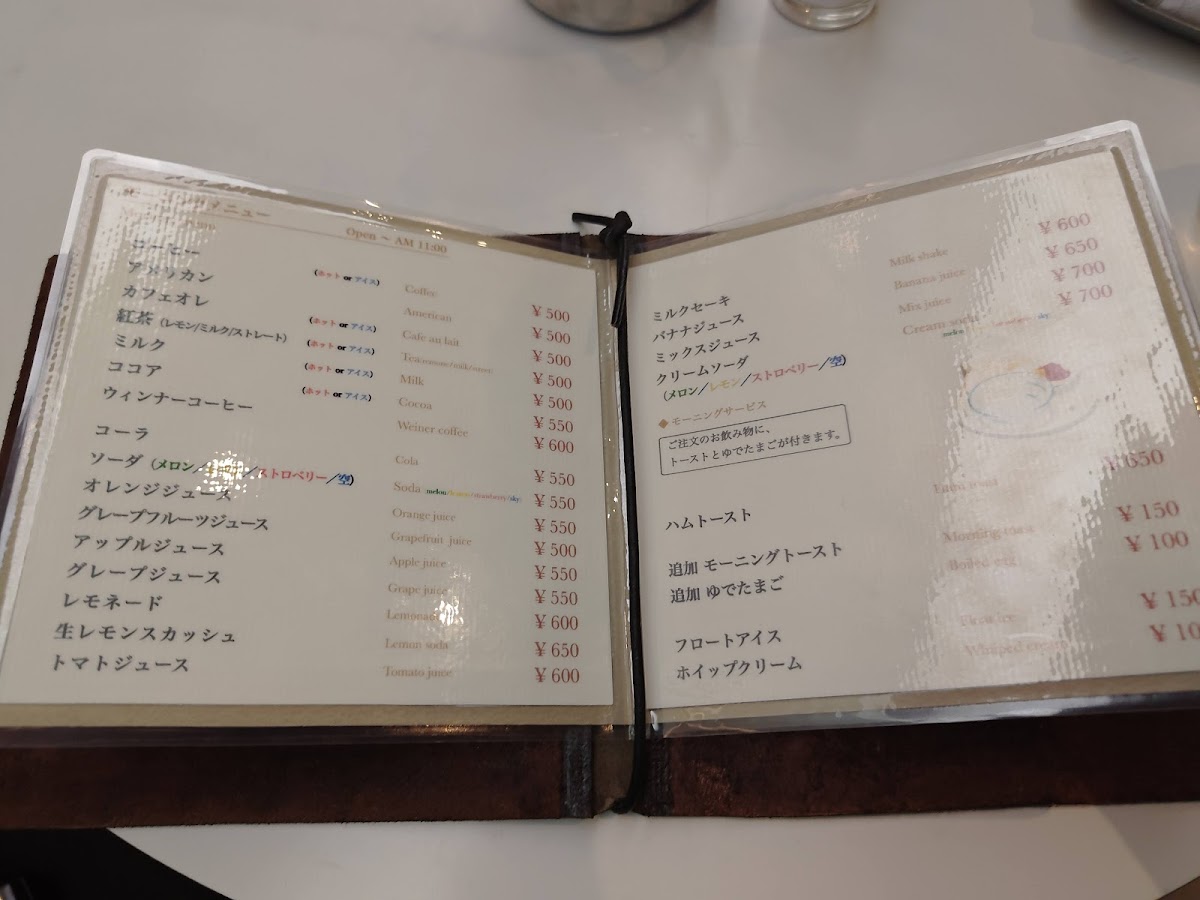 メニュー
Open ～ AM 11:00
コーヒー (ホット or アイス) Coffee ¥ 500
アメリカン American ¥ 500
カフェオレ (ホット or アイス) Cafe au lait ¥ 500
紅茶 (レモン/ミルク/ストレート) (ホット or アイス) Tea ¥ 500
ミルク (ホット or アイス) Milk ¥ 500
ココア (ホット or アイス) Cocoa ¥ 550
ウィンナーコーヒー Weiner coffee ¥ 600
コーラ Cola ¥ 550
ソーダ (メロン/ /ストロベリー/空) Soda melon/ /strawberry/sky ¥ 550
オレンジジュース Orange juice ¥ 550
グレープフルーツジュース Grapefruit juice ¥ 500
アップルジュース Apple juice ¥ 550
グレープジュース Grape juice ¥ 550
レモネード Lemonade ¥ 600
生レモンスカッシュ Lemon soda ¥ 650
トマトジュース Tomato juice ¥ 600
ミルクセーキ Milk shake ¥ 600
バナナジュース Banana juice ¥ 650
ミックスジュース Mix juice ¥ 700
クリームソーダ Cream soda ¥ 700
(メロン/レモン/ストロベリー/空)
◆ モーニングサービス
ご注文のお飲み物に、
トーストとゆでたまごが付きます。
ハムトースト ¥ 650
追加 モーニングトースト Morning toast ¥ 150
追加 ゆでたまご Boiled egg ¥ 100
フロートアイス ¥ 150
ホイップクリーム Whiped cream